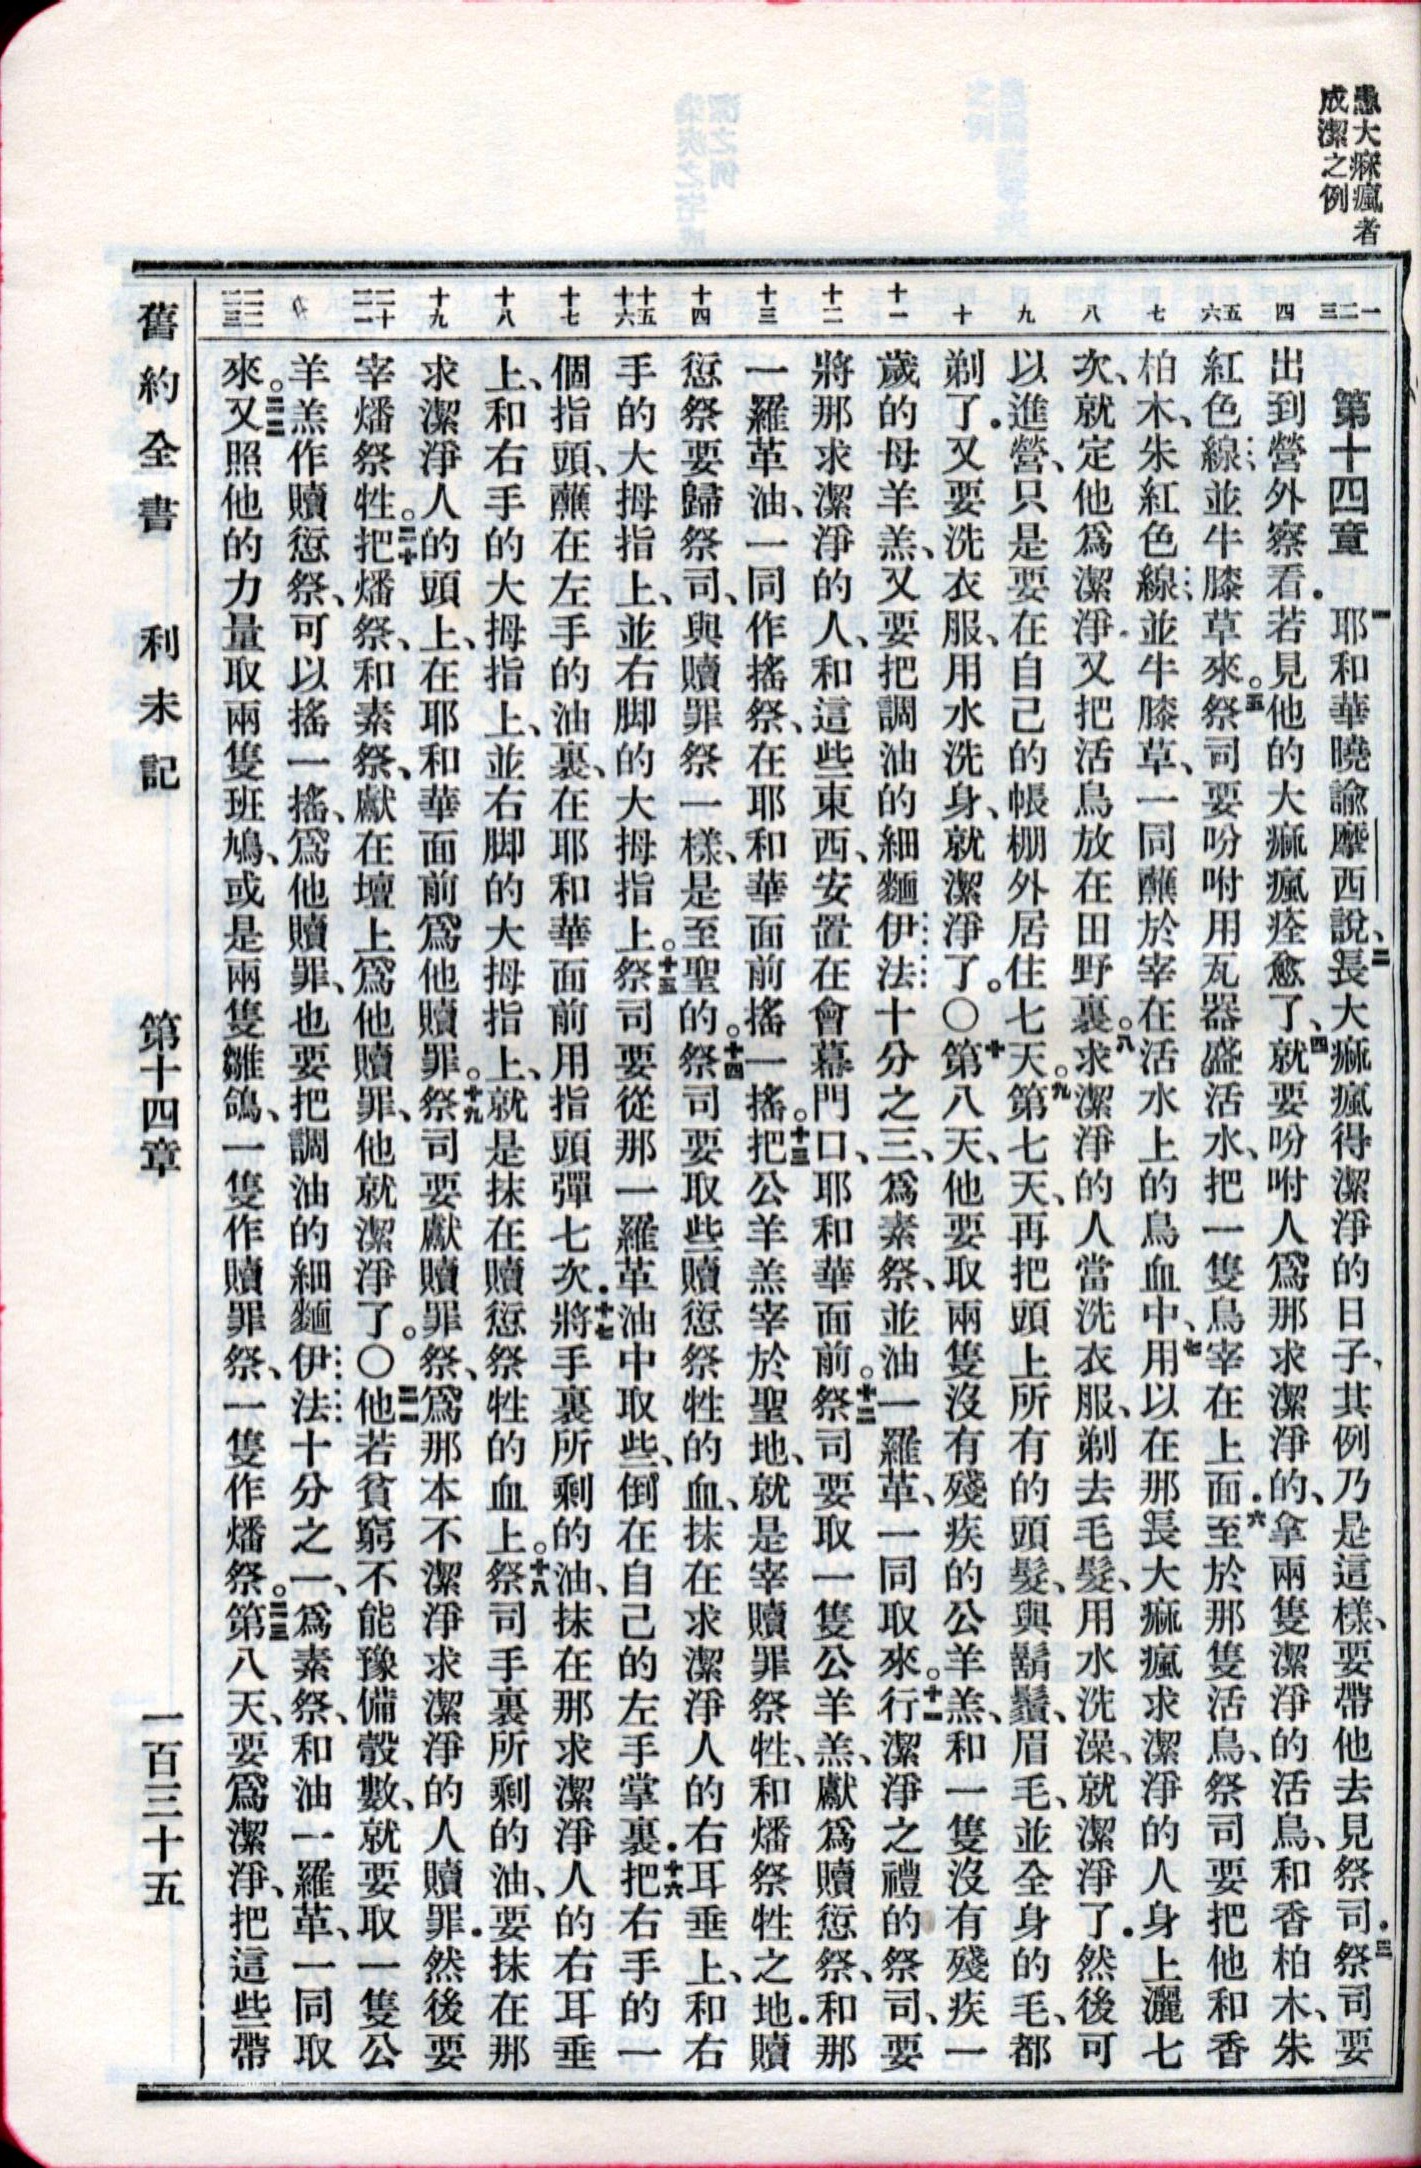 患大痳瘋者
成潔之例
一
二三
四
五六
七
八
九
十
十一
十二
十三
十四
十五十六
十七
十八
十九
二十二一
二二二三
第十四章 一耶和華曉諭摩西說、二長大痳瘋得潔淨的日子、其例乃是這樣、要帶他去見祭司．三祭司要
出到營外察看．若見他的大痳瘋痊愈了、四就要吩咐人爲那求潔淨的、拿兩隻潔淨的活鳥、和香柏木、朱
紅色線並牛膝草來。五祭司要吩咐用瓦器盛活水、把一隻鳥宰在上面．六至於那隻活鳥、祭司要把他和香
柏木、朱紅色線並牛膝草、一同蘸於宰在活水上的鳥血中、七用以在那長大痳瘋求潔淨的人身上灑七
次、就定他爲潔淨．又把活鳥放在田野裏。八求潔淨的人當洗衣服、剃去毛髮、用水洗澡、就潔淨了．然後可
以進營、只是要在自己的帳棚外居住七天。九第七天、再把頭上所有的頭髮、與鬍鬚、眉毛、並全身的毛、都
剃了．又要洗衣服、用水洗身、就潔淨了。〇十第八天、他要取兩隻沒有殘疾的公羊羔、和一隻沒有殘疾一
歲的母羊羔、又要把調油的細麵伊法十分之三、爲素祭、並油一羅革、一同取來。十一行潔淨之禮的祭司、要
將那求潔淨的人、和這些東西、安置在會幕門口、耶和華面前。十二祭司要取一隻公羊羔、獻爲贖愆祭、和那
一羅革油、一同作搖祭、在耶和華面前搖一搖。十三把公羊羔宰於聖地、就是宰贖罪祭牲、和燔祭牲之地．贖
愆祭要歸祭司、與贖罪祭一樣、是至聖的。十四祭司要取些贖愆祭牲的血、抹在求潔淨人的右耳垂上、和右
手的大拇指上、並右脚的大拇指上。十五祭司要從那一羅革油中取些、倒在自己的左手掌裏．十六把右手的一
個指頭、蘸在左手的油裏、在耶和華面前用指頭彈七次．十七將手裏所剩的油、抹在那求潔淨人的右耳垂
上、和右手的大拇指上、並右脚的大拇指上、就是抹在贖愆祭牲的血上。十八祭司手裏所剩的油、要抹在那
求潔淨人的頭上、在耶和華面前爲他贖罪。十九祭司要獻贖罪祭、爲那本不潔淨求潔淨的人贖罪．然後要
宰燔祭牲。二十把燔祭、和素祭、獻在壇上、爲他贖罪、他就潔淨了。〇二一他若貧窮不能豫備彀數、就要取一隻公
羊羔作贖愆祭、可以搖一搖、爲他贖罪、也要把調油的細麵伊法十分之一、爲素祭、和油一羅革、一同取
來。二二又照他的力量取兩隻班鳩、或是兩隻雛鴿、一隻作贖罪祭、一隻作燔祭。二三第八天、要爲潔淨、把這些帶
舊約全書 利未記 第十四章 一百三十五